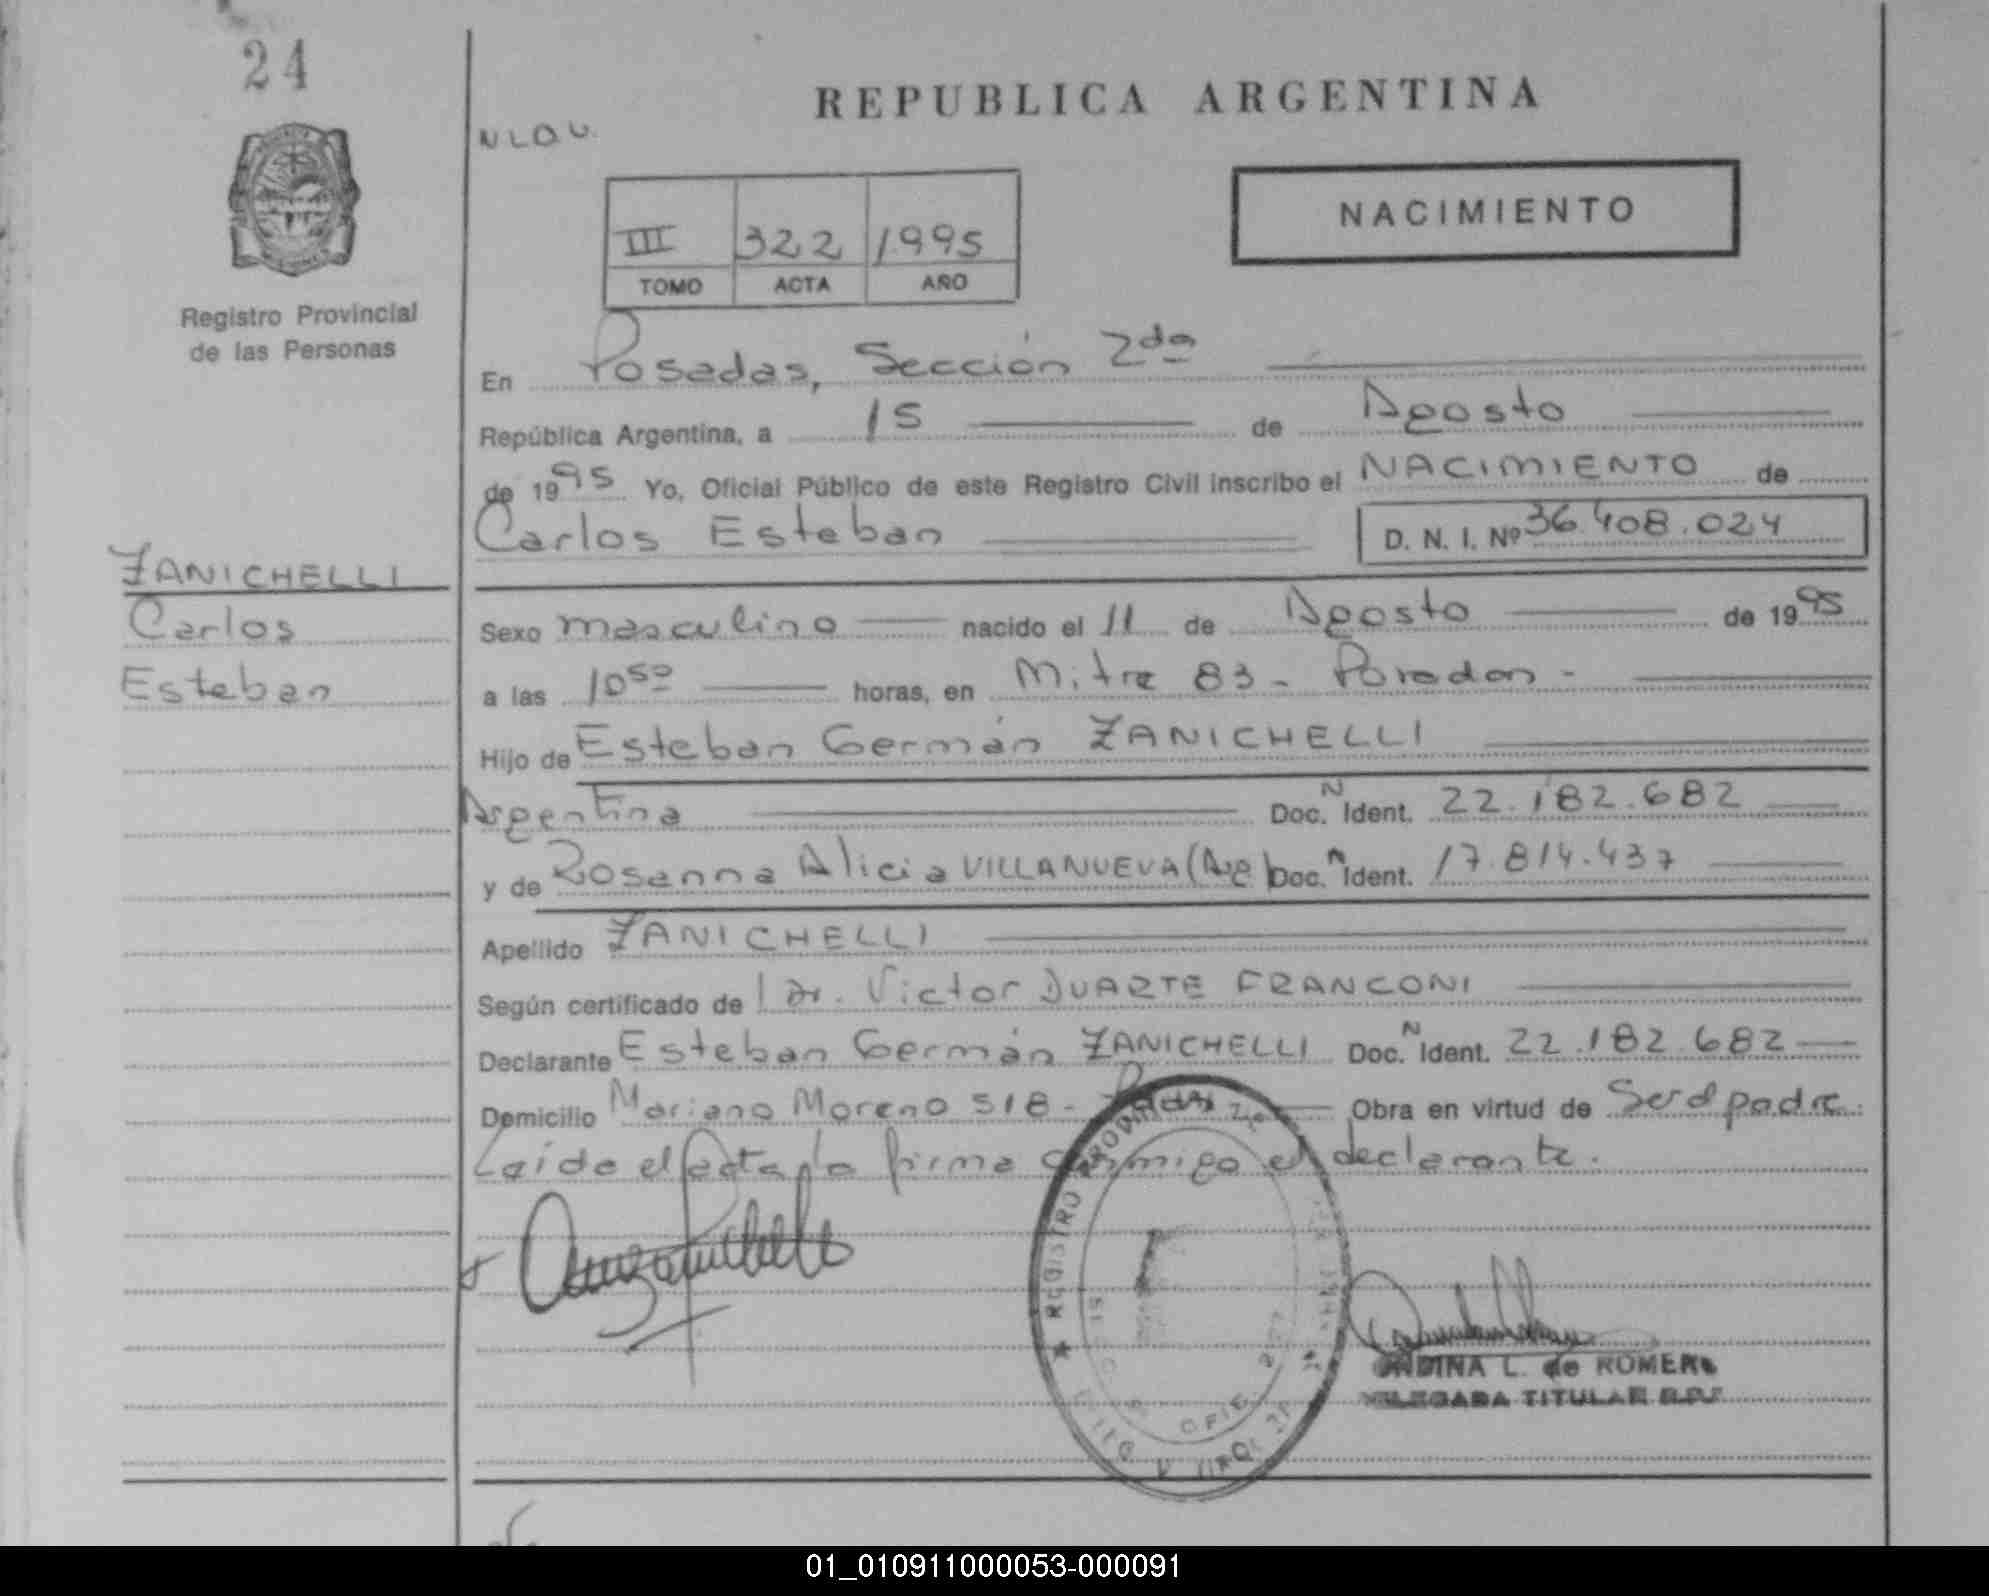 24
REPUBLICA ARGENTINA
Registro Provincial
de las Personas
III 322 1995
TOMO ACTA AÑO
NACIMIENTO
En Posadas, Sección 2da
República Argentina, a 15 de Agosto
de 1995 Yo, Oficial Público de este Registro Civil inscribo el NACIMIENTO de
Carlos Esteban D. N. I. Nº 36.408.024
ZANICHELLI
Carlos
Esteban
Sexo masculino nacido el 11 de Agosto de 1995
a las 10 50 horas, en Mitre 83 - Posadas -
Hijo de Esteban Germán ZANICHELLI
Argentina Doc. N Ident. 22.182.682
y de Rosanna Alicia VILLANUEVA (Arg) Doc. N Ident. 17.814.437
Apellido ZANICHELLI
Según certificado de Dr. Victor DUARTE FRANCONI
Declarante Esteban Germán ZANICHELLI Doc. N Ident. 22.182.682
Domicilio Mariano Moreno 518 - Pdas Obra en virtud de Ser el padre
Leída el acta la firma conmigo el declarante.
REGISTRO PROVINCIAL
OFIC
ONDINA L. de ROMERO
DELEGADA TITULAR R.P.P.
01_010911000053-000091